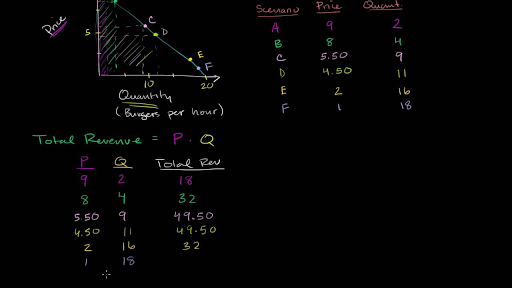 Scenario Price Quant.
A 9 2
B 8 4
C 5.50 9
D 4.50 11
E 2 16
F 1 18
Price
5
C
D
E
F
10 20
Quantity
(Burgers per hour)
Total Revenue = P · Q
P Q Total Rev
9 2 18
8 4 32
5.50 9 49.50
4.50 11 49.50
2 16 32
1 18